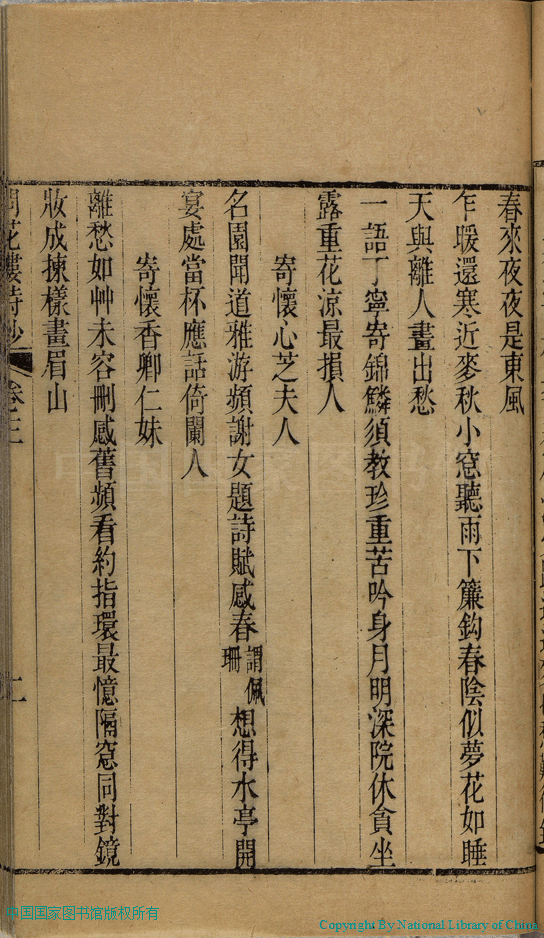 春來夜夜是東風
乍暖還寒近麥秋小窓聽雨下簾鈎春陰似夢花如睡
天與離人畫出愁
一語丁寧寄錦鱗須教珍重苦吟身月明深院休貪坐
露重花凉最損人
寄懷心芝夫人
名園聞道雅游頻謝女題詩賦感春謂佩珊想得水亭開
宴處當杯應話倚闌人
寄懷香卿仁妹
離愁如艸未容刪感舊頻看約指環最憶隔窓同對鏡
妝成揀樣畫眉山
花樓詩鈔 卷三
中国国家图书馆版权所有
Copyright By National Library of China